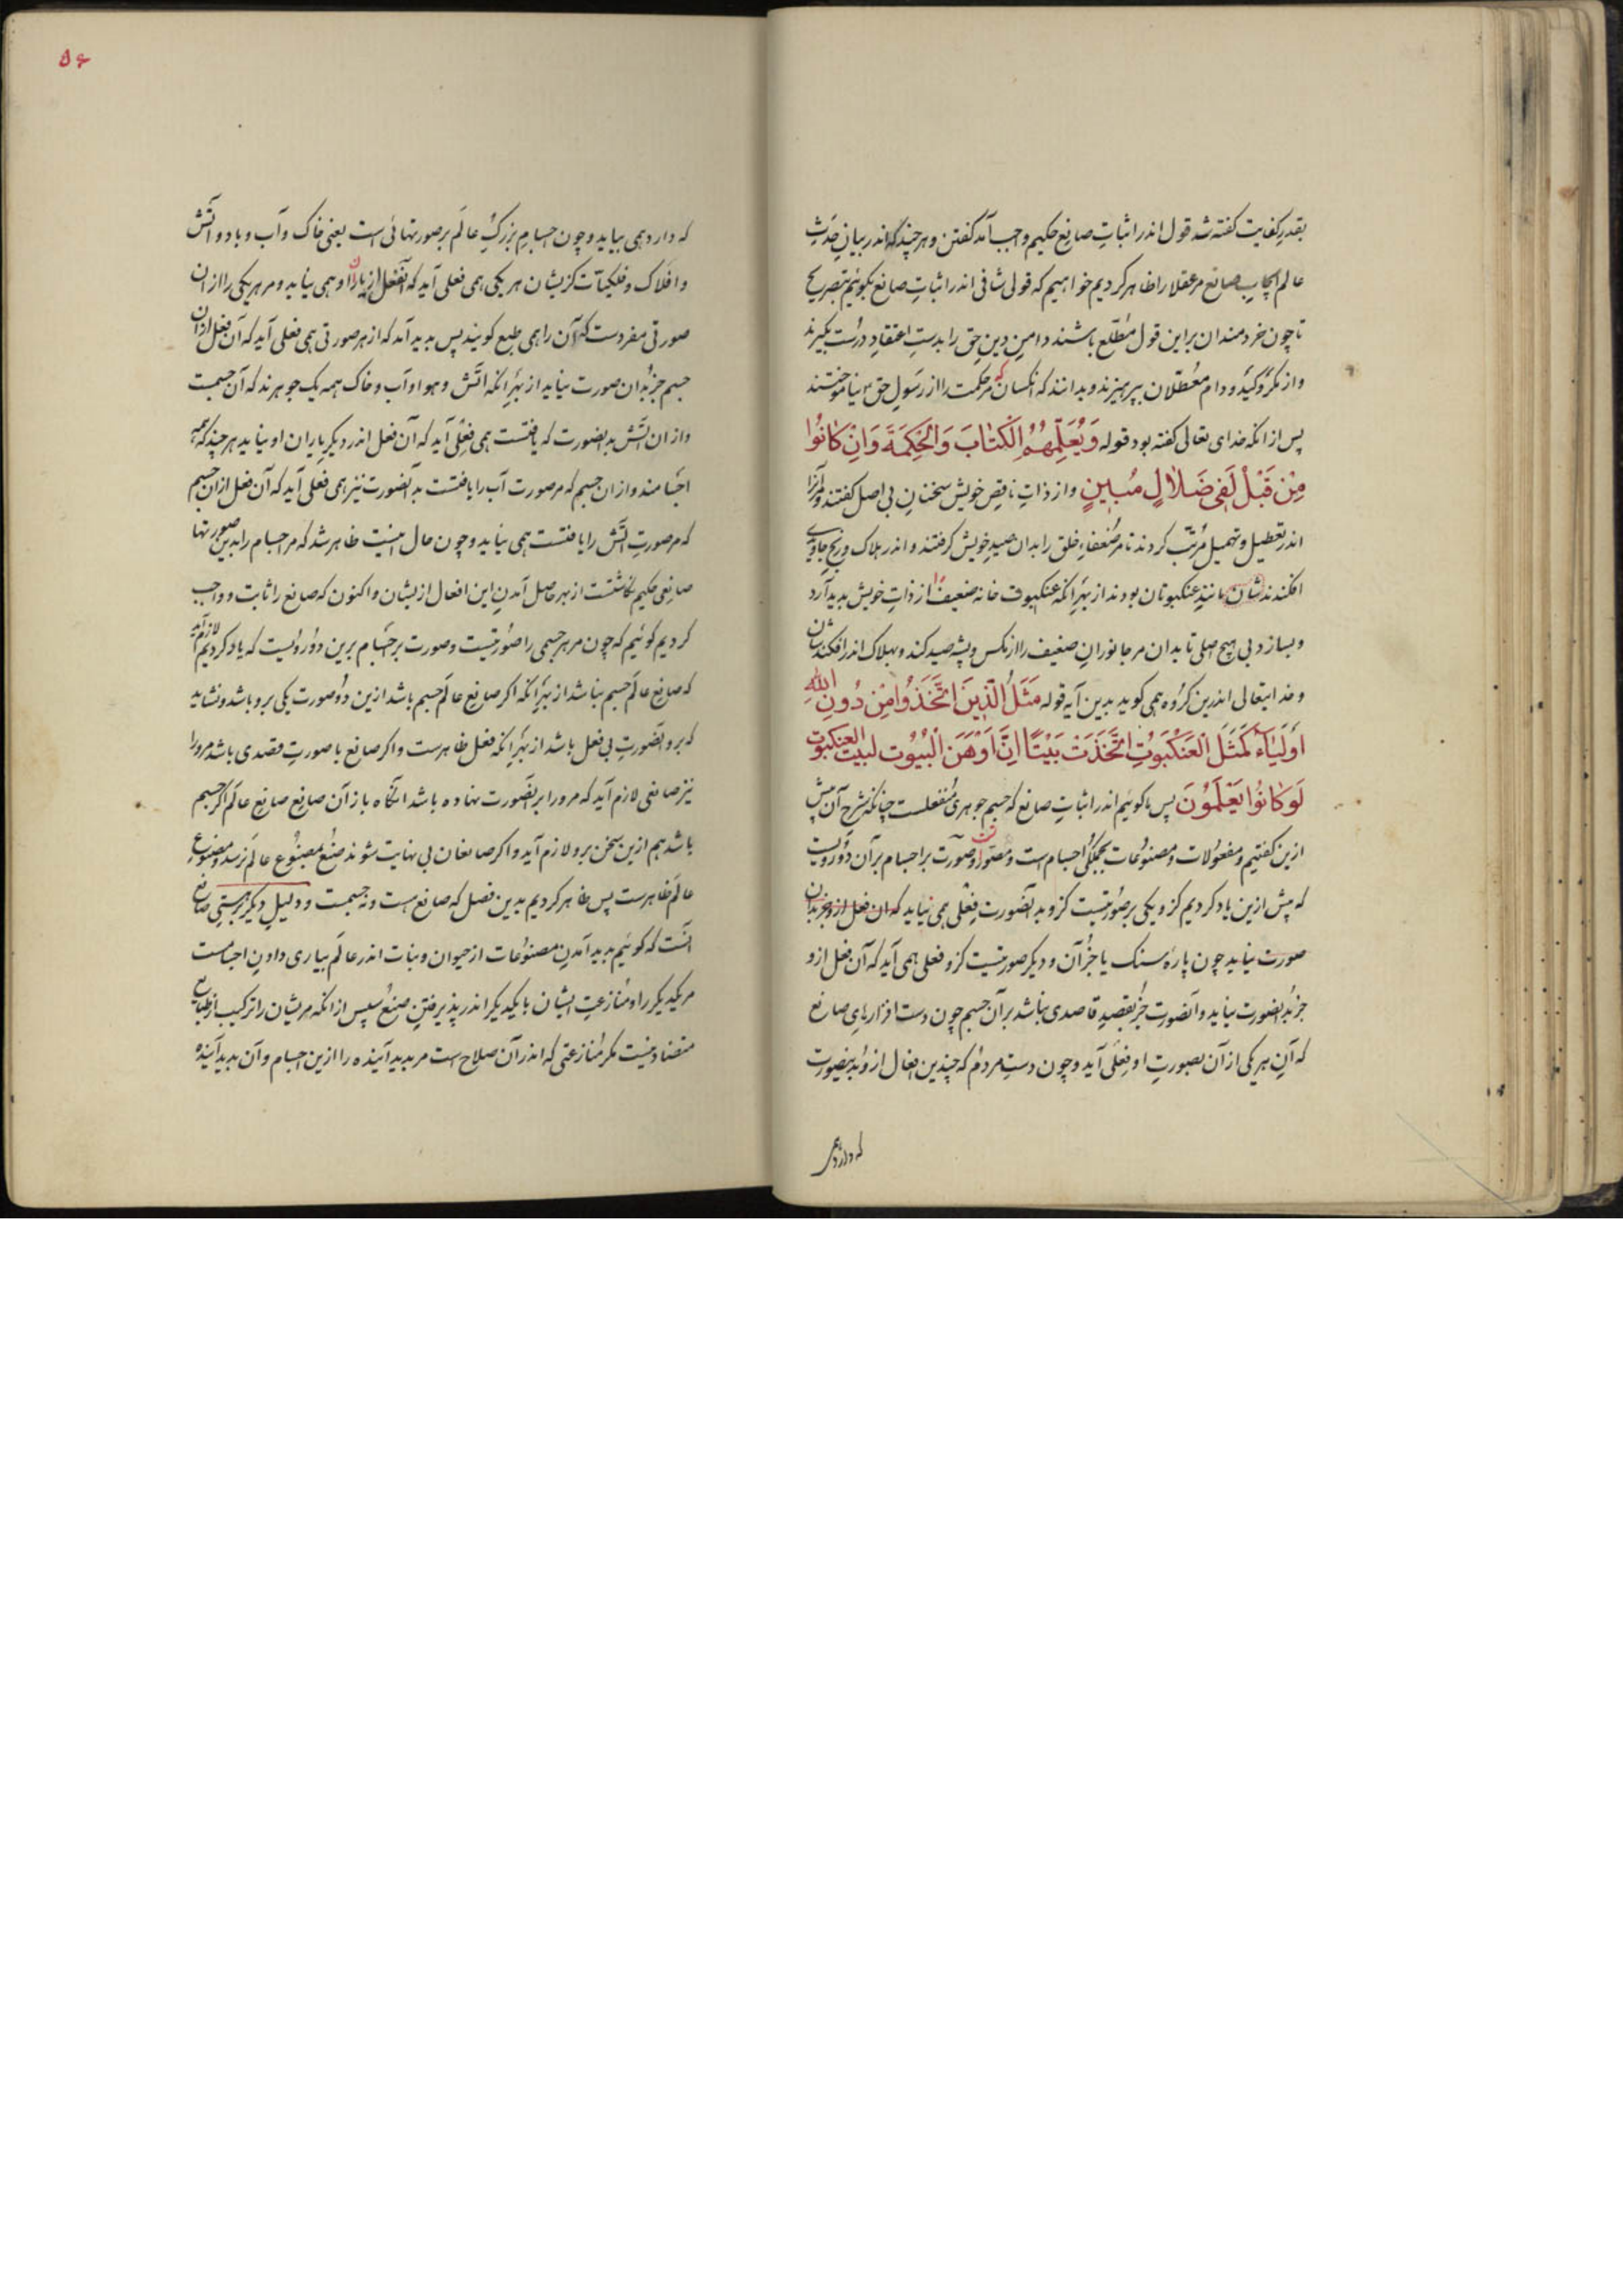 بقدر کفایت گفته شد قول اندر اثباتِ صانعِ حکیم واجب آمد گفتن و هر چند که اندر بیانِ حَدَثِ
عالم ایجابِ صانع مر عقلا را ظاهر کردیم خواهیم که قولی شافی اندر اثباتِ صانع بگوئیم بتصریح
تا چون خردمندان بر این قول مُطّلع باشند دامنِ دینِ حق را بدستِ اعتقادِ درُست بگیرند
و از مکر و کید و دام معُطّلان بپرهیزند و بدانند که آنکسان که مر حکمت را از رسَولِ حق نیاموختند
پس از آنکه خدای تعالی گفته بود قوله وَیُعَلِّمُهُمُ الْکِتٰابَ وَالْحِکْمَةَ وَاِنْ کٰانُوا
مِنْ قَبْلُ لَفی ضَلٰالٍ مُبینٍ و از ذاتِ ناقصِ خویش سخنانِ بی اصل گفتند و مر آنرا
اندر تعطیل و تهمیل مُرتّب کردند تا مر ضُعفاءِ خلق را بدان صیدِ خویش گرفتند و اندر هلاک و رنجِ جاویدی
افکندندشان مانندِ عنکبوتان بودند از بهرِ آنکه عنکبوت خانه ضعیف را از ذاتِ خویش پدید آرد
و بسازد بی هیچ اصلی تا بدان مر جانورانِ ضعیف را از مگس و پشه صید کند و بهلاک اندر افکندشان
و خدایتعالی اندرین گروه همی گوید بدین آیه قوله مَثَلُ الَّذینَ اتَّخَذُوا مِنْ دُونِ اللّٰهِ
اَوْلِیٰاءَ کَمَثَلِ الْعَنْکَبُوتِ اتَّخَذَتْ بَیْتًا اِنَّ اَوْهَنَ الْبُیُوتِ لَبَیْتُ الْعَنْکَبُوتِ
لَوْ کٰانُوا یَعْلَمُونَ پس ما گوئیم اندر اثباتِ صانع که جسم جوهری مُنفعلست چنانکه شرحِ آن پیش
ازین گفتیم و مفعولات و مصنوعات بجملگی اجسام است و مصّور و صورت بر اجسام بر آن دو رویست
که پیش ازین یاد کردیم کزو یکی بر صورتیست کزو بدانصورت فِعلی همی نیاید که آن فعل ازو جز بدان
صورت نیاید چون پارهٔ سنگ یا جُز آن و دیگر صورتیست کزو فعلی همی آید که آن فعل ازو
جز بدانصورت نیاید و آنصورت جُز بقصدِ قاصدی نباشد بر آن جسم چون دست افزارهایِ صانع
که آنِ هر یکی از آن بصورتِ او فِعلی آید و چون دستِ مردم که چندین افعال ازو بدینصورت
که دارد همی
۵۶
که دارد همی بیاید و چون اجسامِ بزرگِ عالَم بر صورتهائی است یعنی خاک و آب و باد و آتش
و افلاک و فلکیّات کزیشان هر یکی همی فعلی آید که آنفعل از یاران او همی نیاید و مر هر یکی را از آن
صورتی مفردست که آن را همی طبع گویند پس پدید آمد که از هر صورتی همی فعلی آید که آن فعل از آن
جسم جز بدان صورت نیاید از بهرِ آنکه آتش و هوا و آب و خاک همه یک جوهرند که آن جسمست
و از آن آتش بدانصورت که یافتست همی فِعلی آید که آن فعل اندر دیگر یاران او نیاید هر چند که همه
اجسامند و از آن جسم که مر صورت آب را یافتست بدانصورت نیز همی فعلی آید که آن فعل از آن جسم
که مر صورتِ آتش را یافتست همی نیاید و چون حال اینست ظاهر شد که مر اجسام را بدین صورتها
صانعی حکیم نگاشتست از بهر حاصل آمدنِ این افعال ازیشان و اکنون که صانع را ثابت و واجب
کردیم گوئیم که چون مر هر جسمی را صورتیست و صورت بر اجسام برین دو رویست که یاد کردیم لازم آید
که صانعِ عالَم جسم نباشد از بهرِ آنکه اگر صانع عالَم جسم باشد ازین دو صورت یکی برو باشد و نشاید
که برو آنصورتِ بی فعل باشد از بهرِ آنکه فعل ظاهرست و اگر صانع با صورتِ قصدی باشد مر او را
نیز صانعی لازم آید که مر ورا بر آنصورت نهاده باشد آنگاه باز آن صانعِ صانعِ عالَم اگر جسم
باشد هم ازین سخن برو لازم آید و اگر صانعان بی نهایت شوند صُنع بمصنوعِ عالم نرسد و مصنوعِ
عالَم ظاهرست پس ظاهر کردیم بدین فصل که صانع هست و نه جسمست و دلیلِ دیگر بر هستیِ صانع
آنست که گوئیم پدید آمدنِ مصنوعات از حیوان و نبات اندر عالَم بیاری دادنِ اجسامست
مر یکدیگر را و مُنازعتِ ایشان با یکدیگر اندر پذیرفتنِ صُنع سپس از آنکه مریشان را ترکیب از طبایعِ
متضاد نیست مگر مُنازعتی که اندر آن صلاح است مر پدید آینده را ازین اجسام و آن پدید آینده